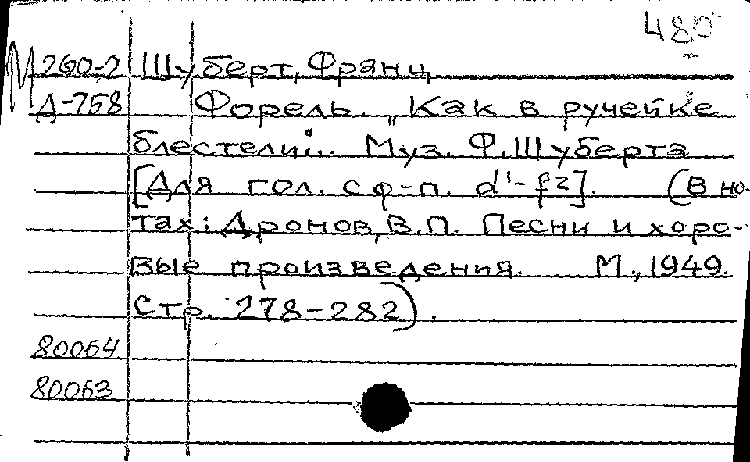 480
М 260-2 Шуберт, Франц
Д-758 Форель. „Как в ручейке
блестели"... Муз. Ф. Шуберта
[Для гол. с ф-п. d'-f2]. (В но-
тах: Дронов, В.П. Песни и хоро-
вые произведения. М., 1949.
Стр. 278-282).
80064
80063